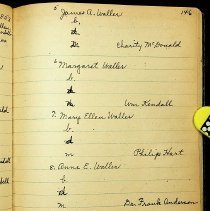 5 James A. Waller
146
b.
d
m Charity McDonald
6 Margaret Waller
b.
d
m Wm Kendall
7. Mary Ellen Waller
b.
d
m Philip Hart
8. Anne E. Waller
b
d
m Dr. Frank Anderson